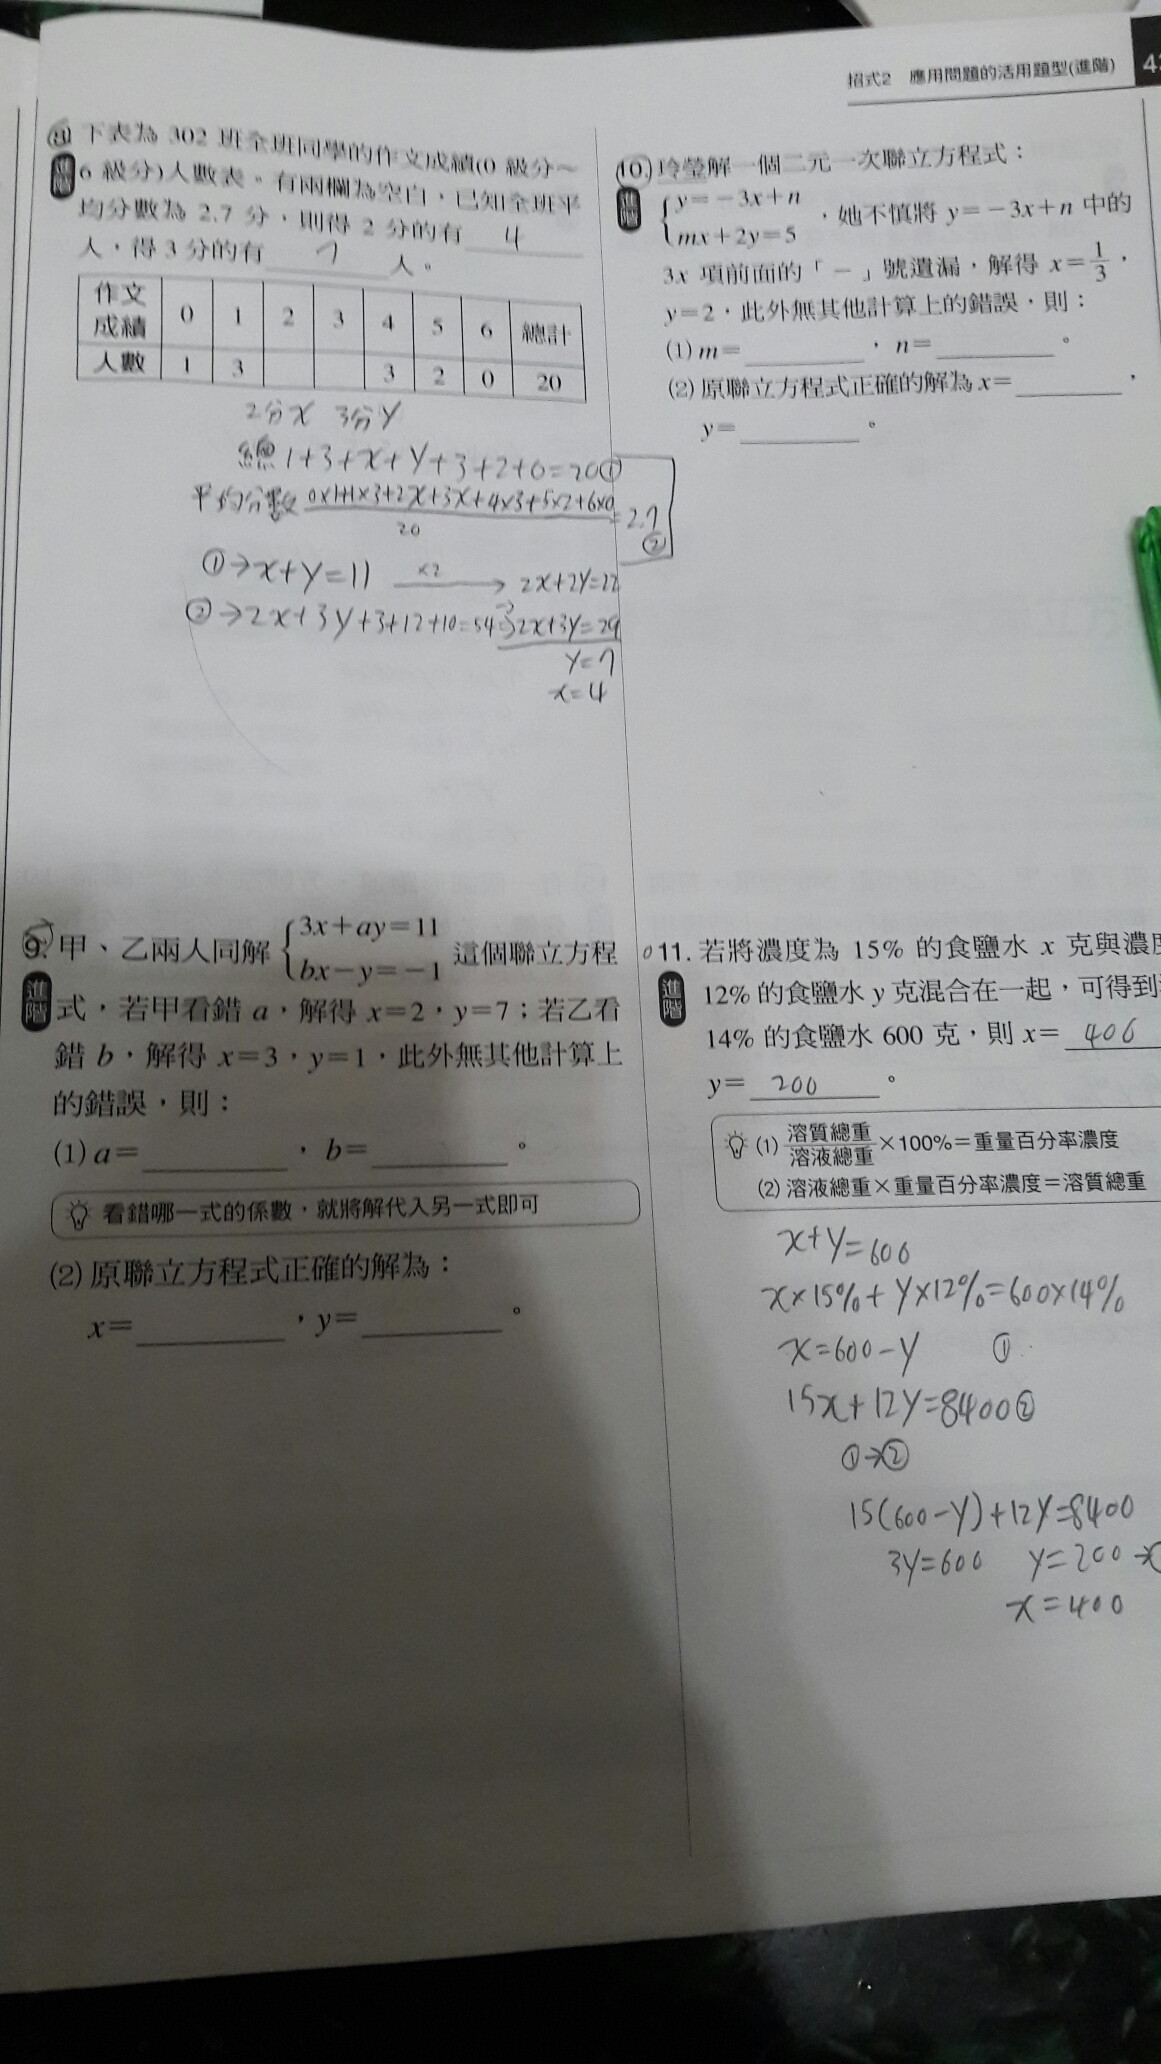 招式2 應用問題的活用題型(進階)
8. 下表為 302 班全班同學的作文成績(0 級分～
進階 6 級分)人數表。有兩欄為空白，已知全班平
均分數為 2.7 分，則得 2 分的有 4
人，得 3 分的有 7 人。
作文成績 0 1 2 3 4 5 6 總計
人數 1 3 3 2 0 20
2分X 3分Y
總 1+3+x+y+3+2+0=20①
平均分數 0×1+1×3+2x+3x+4×3+5×2+6×0
20
=2.7
②
①→x+y=11 ×2 → 2x+2y=22
②→2x+3y+3+12+10=54⇒2x+3y=29
y=7
x=4
9. 甲、乙兩人同解 {3x+ay=11
bx−y=−1 這個聯立方程
進階 式，若甲看錯 a，解得 x=2，y=7；若乙看
錯 b，解得 x=3，y=1，此外無其他計算上
的錯誤，則：
(1) a=　　　，b=　　　。
看錯哪一式的係數，就將解代入另一式即可
(2) 原聯立方程式正確的解為：
x=　　　，y=　　　。
10. 玲瑩解一個二元一次聯立方程式：
進階 {y=−3x+n
mx+2y=5 ，她不慎將 y=−3x+n 中的
3x 項前面的「－」號遺漏，解得 x=1/3，
y=2，此外無其他計算上的錯誤，則：
(1) m=　　　，n=　　　。
(2) 原聯立方程式正確的解為 x=　　　，
y=　　　。
11. 若將濃度為 15% 的食鹽水 x 克與濃度
進階 12% 的食鹽水 y 克混合在一起，可得到
14% 的食鹽水 600 克，則 x= 400
y= 200 。
(1) 溶質總重/溶液總重 ×100%＝重量百分率濃度
(2) 溶液總重×重量百分率濃度＝溶質總重
x+y=600
x×15%+y×12%=600×14%
x=600-y ①
15x+12y=8400②
①→②
15(600-y)+12y=8400
3y=600 y=200
x=400